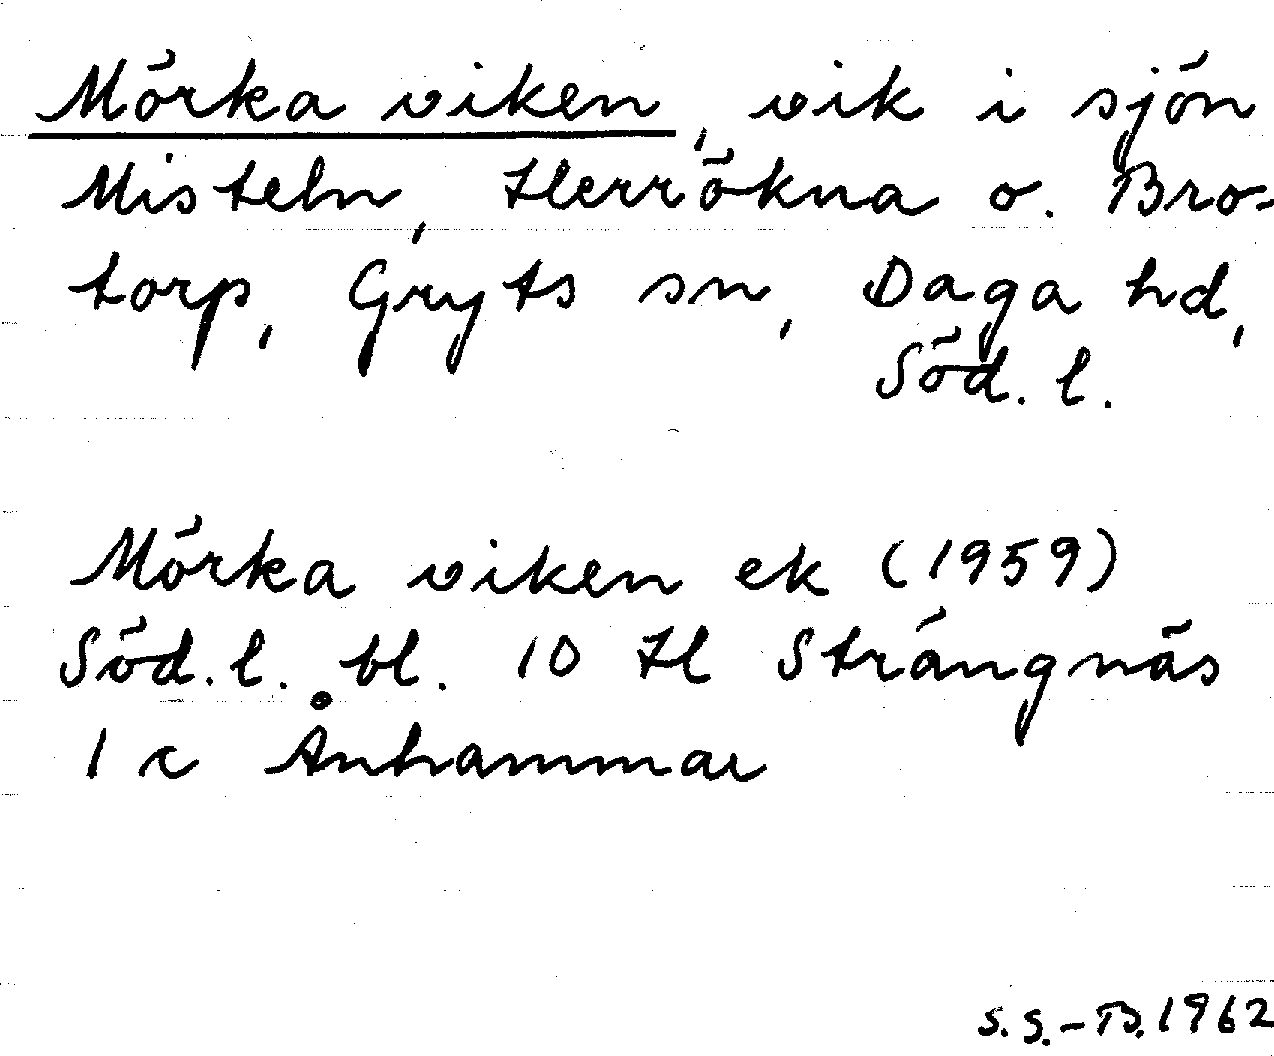 Mörka viken, vik i sjön
Misteln, Herrökna o. Bro-
torp, Gryts sn, Daga hd,
Söd. l.
Mörka viken ek (1959)
Söd. l. bl. 10 H Strängnäs
1 c Ånhammar
S. G.-B. 1962